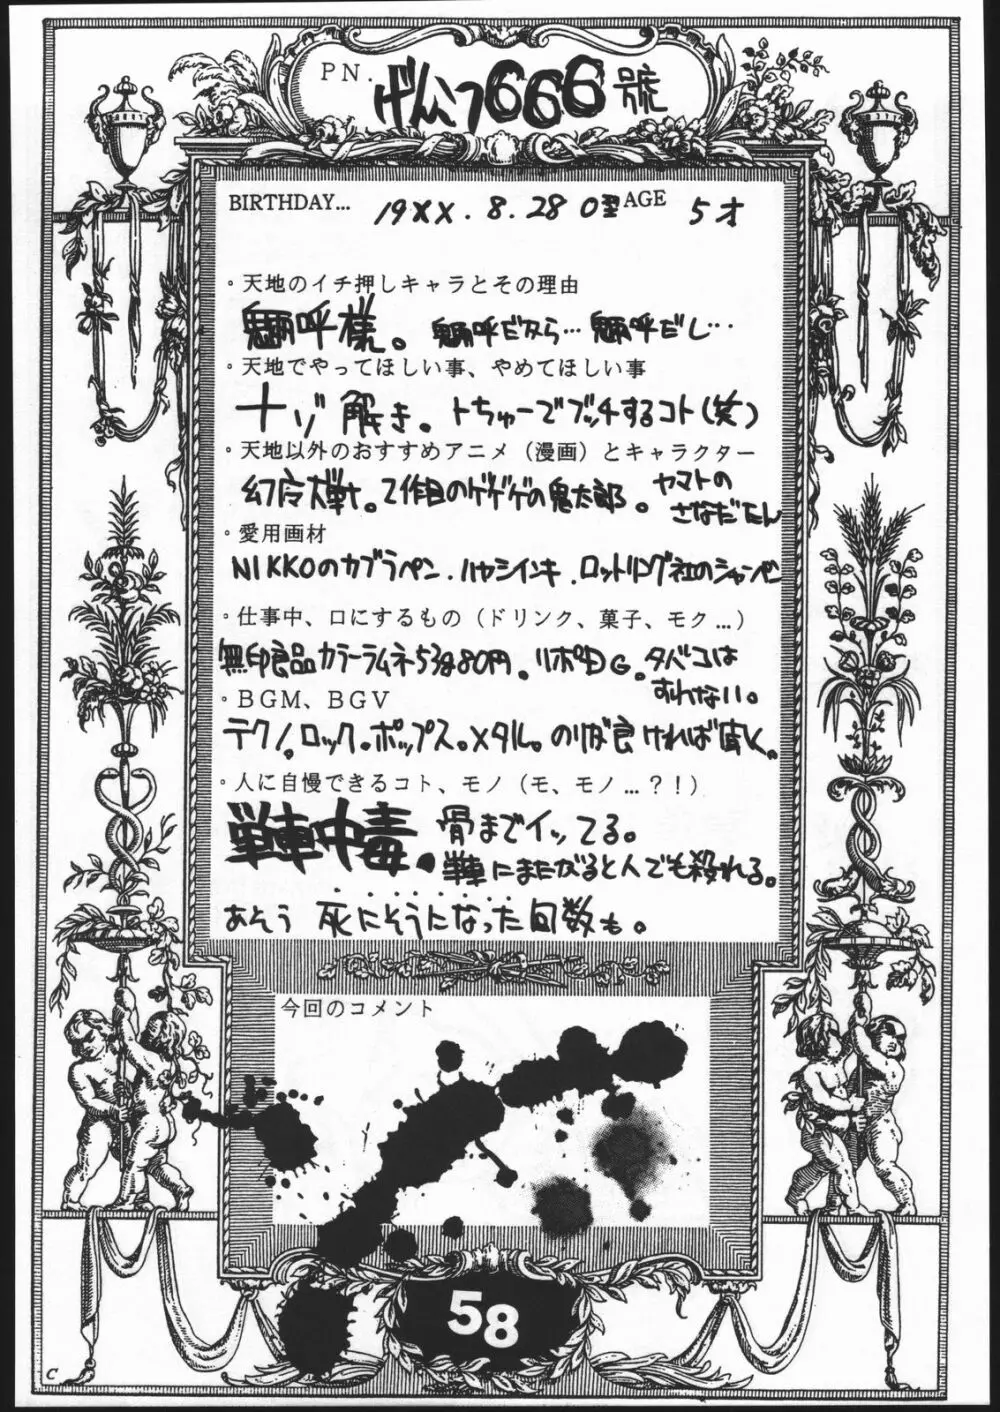 PN. げんこつ666號
BIRTHDAY... 19XX. 8. 28 0型 AGE 5才
・天地のイチ押しキャラとその理由
魎呼様。 魎呼だから… 魎呼だし…
・天地でやってほしい事、やめてほしい事
ナゾ解き。トちゅーでブッチするコト(笑)
・天地以外のおすすめアニメ（漫画）とキャラクター
幻魔大戦。2作目のゲゲゲの鬼太郎。ヤマトの
さなださん
・愛用画材
NIKKOのカブラペン．ハヤシインキ．ロットリング社のシャーペン
・仕事中、口にするもの（ドリンク、菓子、モク…）
無印良品カラーラムネ53g80円。リポD G。タバコは
すわない。
・BGM、BGV
テクノ。ロック。ポップス。メタル。のりが良ければ
・人に自慢できるコト、モノ（モ、モノ…？!）
戦車中毒。骨までイッてる。
戦車にまたがると人でも殺れる。
あそう 死にそうになった回数も。
今回のコメント
58
C